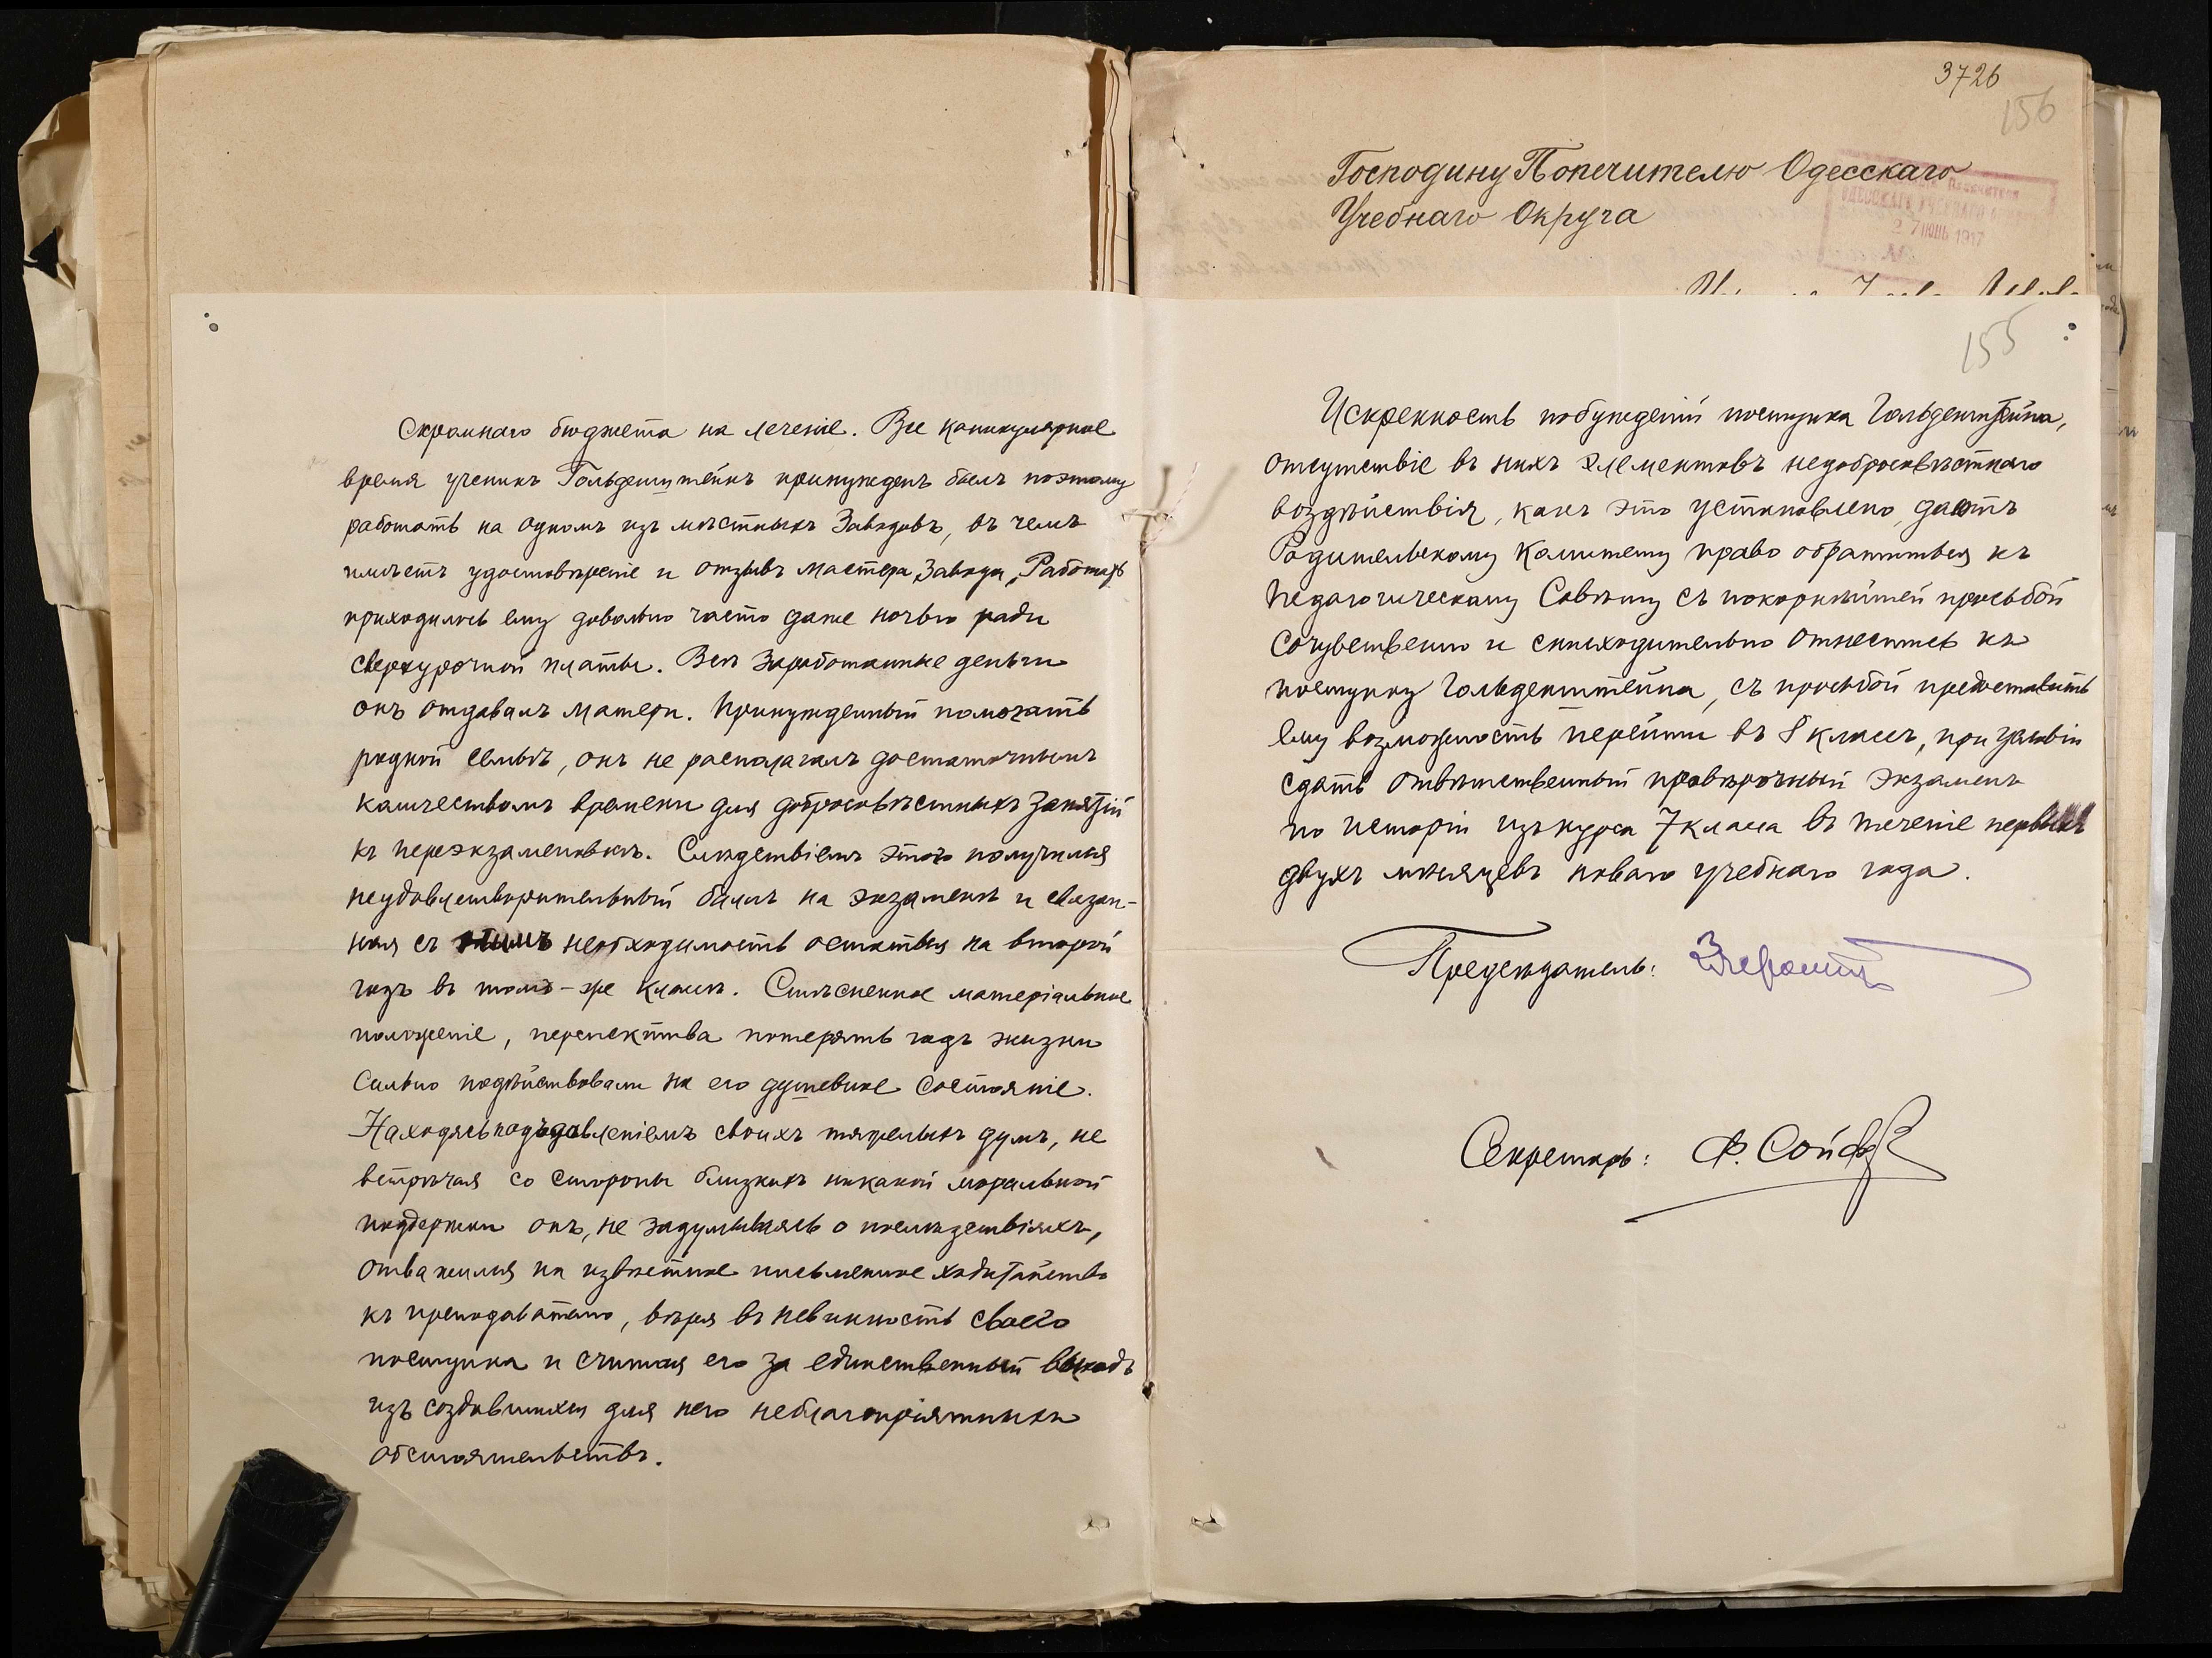 скромнаго бюджета на леченіе. Все каникулярное
время ученикъ Гольденштейнъ принужденъ былъ поэтому
работать на одномъ изъ мѣстныхъ заводовъ, въ чемъ
имѣетъ удостовѣреніе и отзывъ мастера завода. Работать
приходилось ему довольно часто даже ночью ради
сверхурочной платы. Всѣ заработанные деньги
онъ отдавалъ матери. Принужденный помогать
родной семьѣ, онъ не располагалъ достаточнымъ
количествомъ времени для добросовѣстныхъ занятій
къ переэкзаменовкѣ. Слѣдствіемъ этого получился
неудовлетворительный баллъ на экзаменѣ и связан-
ная съ этимъ необходимость остаться на второй
годъ въ томъ-же классѣ. Стѣсненное матеріальное
положеніе, перспектива потерять годъ жизни
сильно подѣйствовали на его душевное состояніе.
Находясь подъ давленіемъ своихъ тяжелыхъ думъ, не
встрѣчая со стороны близкихъ никакой моральной
поддержки онъ, не задумываясь о послѣдствіяхъ,
отважился на извѣстное письменное ходатайство
къ преподавателю, вѣря въ невинность своего
поступка и считая его за единственный выходъ
изъ создавшихся для него неблагопріятныхъ
обстоятельствъ.
3726
156
Господину Попечителю Одесскаго
Учебнаго Округа
27 ІЮНЬ 1917
155
Искренность побужденій поступка Гольденштейна,
отсутствіе въ нихъ элементовъ недобросовѣстнаго
воздѣйствія, какъ это установлено, даетъ
Родительскому Комитету право обратиться къ
Педагогическому Совѣту съ покорнѣйшей просьбой
сочувственно и снисходительно отнестись къ
поступку Гольденштейна, съ просьбой предоставить
ему возможность перейти въ 8 классъ, при условіи
сдать отвѣтственный провѣрочный экзаменъ
по исторіи изъ курса 7 класса въ теченіе первыхъ
двухъ мѣсяцевъ новаго учебнаго года.
Предсѣдатель:
Секретарь: Ф.